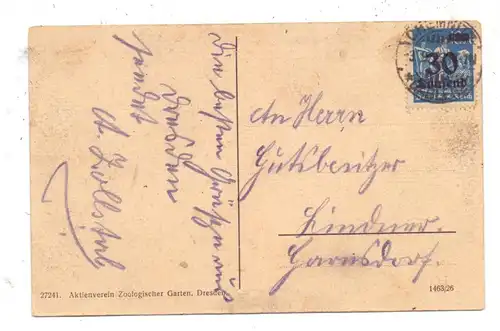 Die besten Grüße aus
Dresden
sendet
A.
An Herrn
Gutsbesitzer
Lindner.
Garnsdorf.
30
27241. Aktienverein Zoologischer Garten, Dresden
1463/26